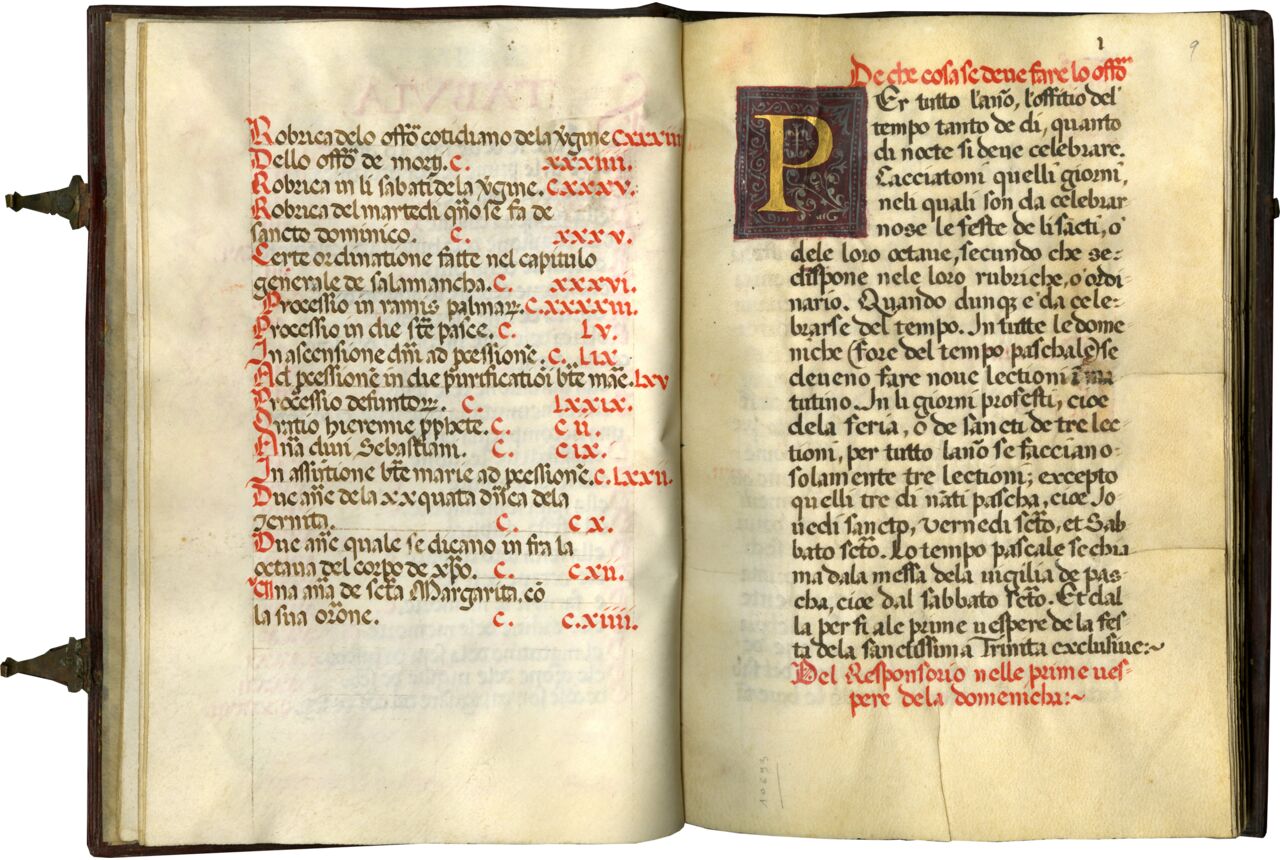 Robrica delo offō cotidiano dela v̄gine CXXXIII
Dello offō de morti. C. XXXIIII.
Robrica in li sabati dela v̄gine. CXXXV.
Robrica del martedi qn̄o se fa de
sancto dominico. C. XXXV.
Certe ordinatione fatte nel capitulo
generale de salamancha. C. XXXVI.
Processio in ramis palmaꝝ. C. XXXXIII.
Processio in die sc̄te pasce. C. LV.
In ascensione dn̄i ad pcessionē. C. LIX.
Ad pcessionē in die purificatiōi bt̄e marie. LXV
Processio defunctoꝝ. C. LXXIX.
Oratio hieremie pphete. C. CII.
An̄a divi Sebastiani. C. CIX.
In assūtione bt̄e marie ad pcessionē. C. LXXII.
Due an̄e de la XX quata dn̄ica dela
Ternita. C. CX.
Due an̄e quale se dicano in fra la
octava del corpo de xp̄o. C. CXII.
Una an̄a de sc̄ta Margarita, cō
la sua orōne. C. C.XIIII.
1
9
De che cosa se deve fare lo offō
PEr tutto l'año, l'offitio del
tempo tanto de di, quanto
di nocte si deve celebrare.
Cacciatoni quelli giorni,
neli quali son da celebrar
nose le feste de li sācti, o
dele loro octave, secundo che se-
dispone nele loro rubriche, o ordi-
nario. Quando dunq̄ e da cele-
brarse del tempo. In tutte le dome
niche (fore del tempo paschale) se
deveno fare nove lectioni i ma
tutino. In li giorni profesti, cioe
dela feria, o de sancti de tre lec
tioni, per tutto lano se facciano-
solamente tre lectioni; excepto
quelli tre di nāti pascha, cioe Jo-
vedi sancto, Vernedi scto, et Sab-
bato scto. Lo tempo pascale se chia
ma dala messa dela vigilia de pas-
cha, cioe dal sabbato scto. Et dal
la per fi ale prime vespere de la fes
ta dela sanctissima Trinita exclusive:~
Del Responsorio nelle prime ves-
pere dela domenicha:~
10693